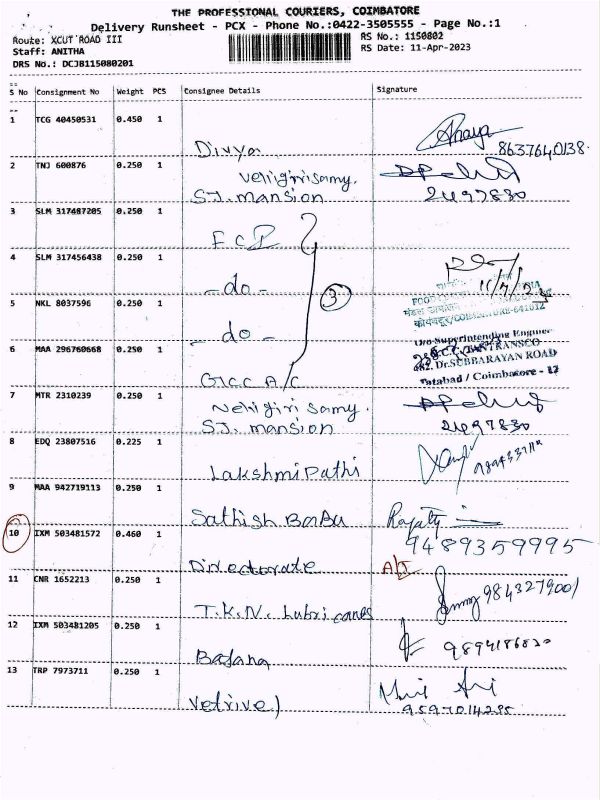 THE PROFESSIONAL COURIERS, COIMBATORE
Delivery Runsheet - PCX - Phone No.:0422-3505555 - Page No.:1
Route: XCUT ROAD III
RS No.: 1150802
Staff: ANITHA
RS Date: 11-Apr-2023
DRS No.: DCJB115080201
S No Consignment No Weight PCS Consignee Details Signature
1 TCG 40450531 0.450 1
Divya 8637640138.
2 TNJ 600876 0.250 1
Velligirisamy.
S.J. mansion 2497830
3 SLM 317487205 0.250 1
FCI
4 SLM 317456438 0.250 1
- do -
5 NKL 8037596 0.250 1
- do -
3
6 MAA 296760668 0.250 1
O/o Superintending Engineer
TANTRANSCO
Dr.SUBBARAYAN ROAD
Tatabad / Coimbatore - 12
GCC A/C
7 MTR 2310239 0.250 1
Velligiri samy.
S.J. mansion 2497830
8 EDQ 23807516 0.225 1
Lakshmi Pathi
9 MAA 942719113 0.250 1
Sathish Babu
10 IXM 503481572 0.460 1
9489359995
Directorate
11 CNR 1652213 0.250 1
9843279001
T.K.N. Lubricanes
12 IXM 503481205 0.250 1
9894186820
13 TRP 7973711 0.250 1
Vetrivel